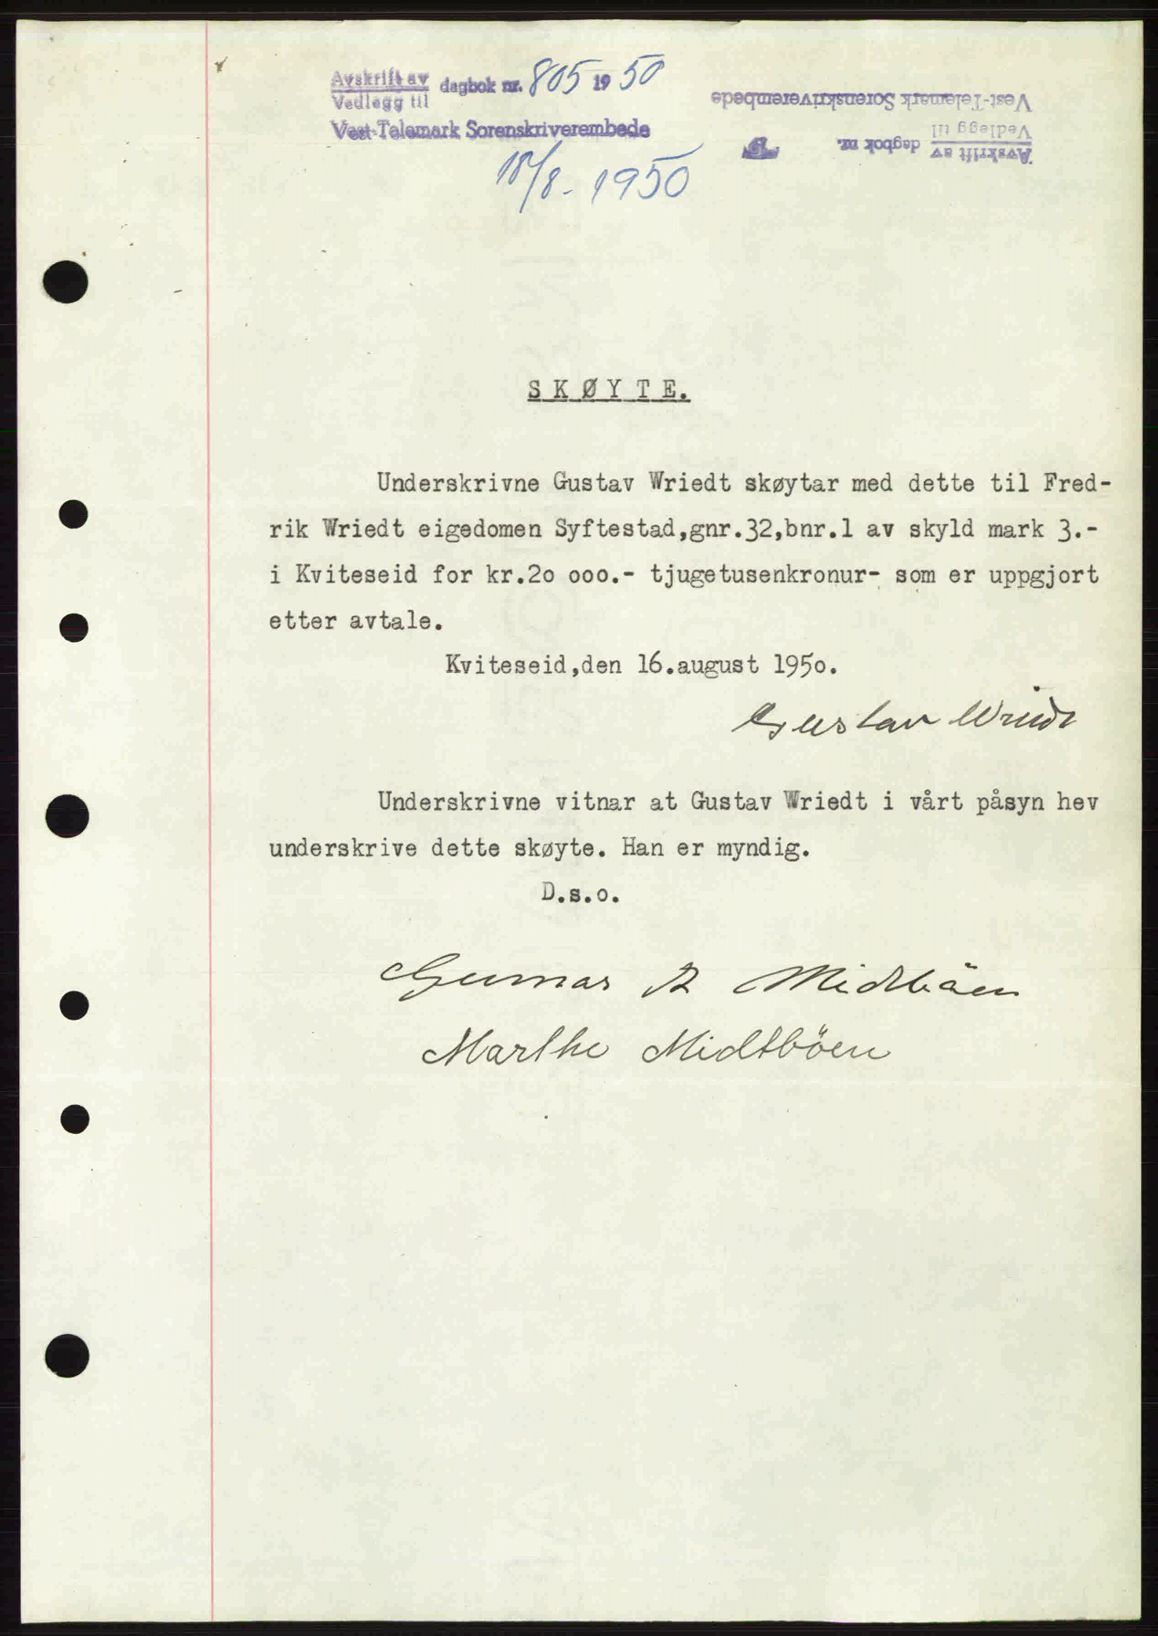 Avskrift av
Vedlegg til
dagbok nr. 805 19 50
Vest-Telemark Sorenskriverembede
18/8 - 1950
Avskrift av
Vedlegg til
dagbok nr.
Vest-Telemark Sorenskriverembede
SKØYTE.
Underskrivne Gustav Wriedt skøytar med dette til Fred-
rik Wriedt eigedomen Syftestad,gnr.32,bnr.1 av skyld mark 3.-
i Kviteseid for kr.2o ooo.- tjugetusenkronur- som er uppgjort
etter avtale.
Kviteseid,den 16.august 195o.
Gustav Wriedt
Underskrivne vitnar at Gustav Wriedt i vårt påsyn hev
underskrive dette skøyte. Han er myndig.
D.s.o.
Gunnar A Midtböen
Marthe Midtböen